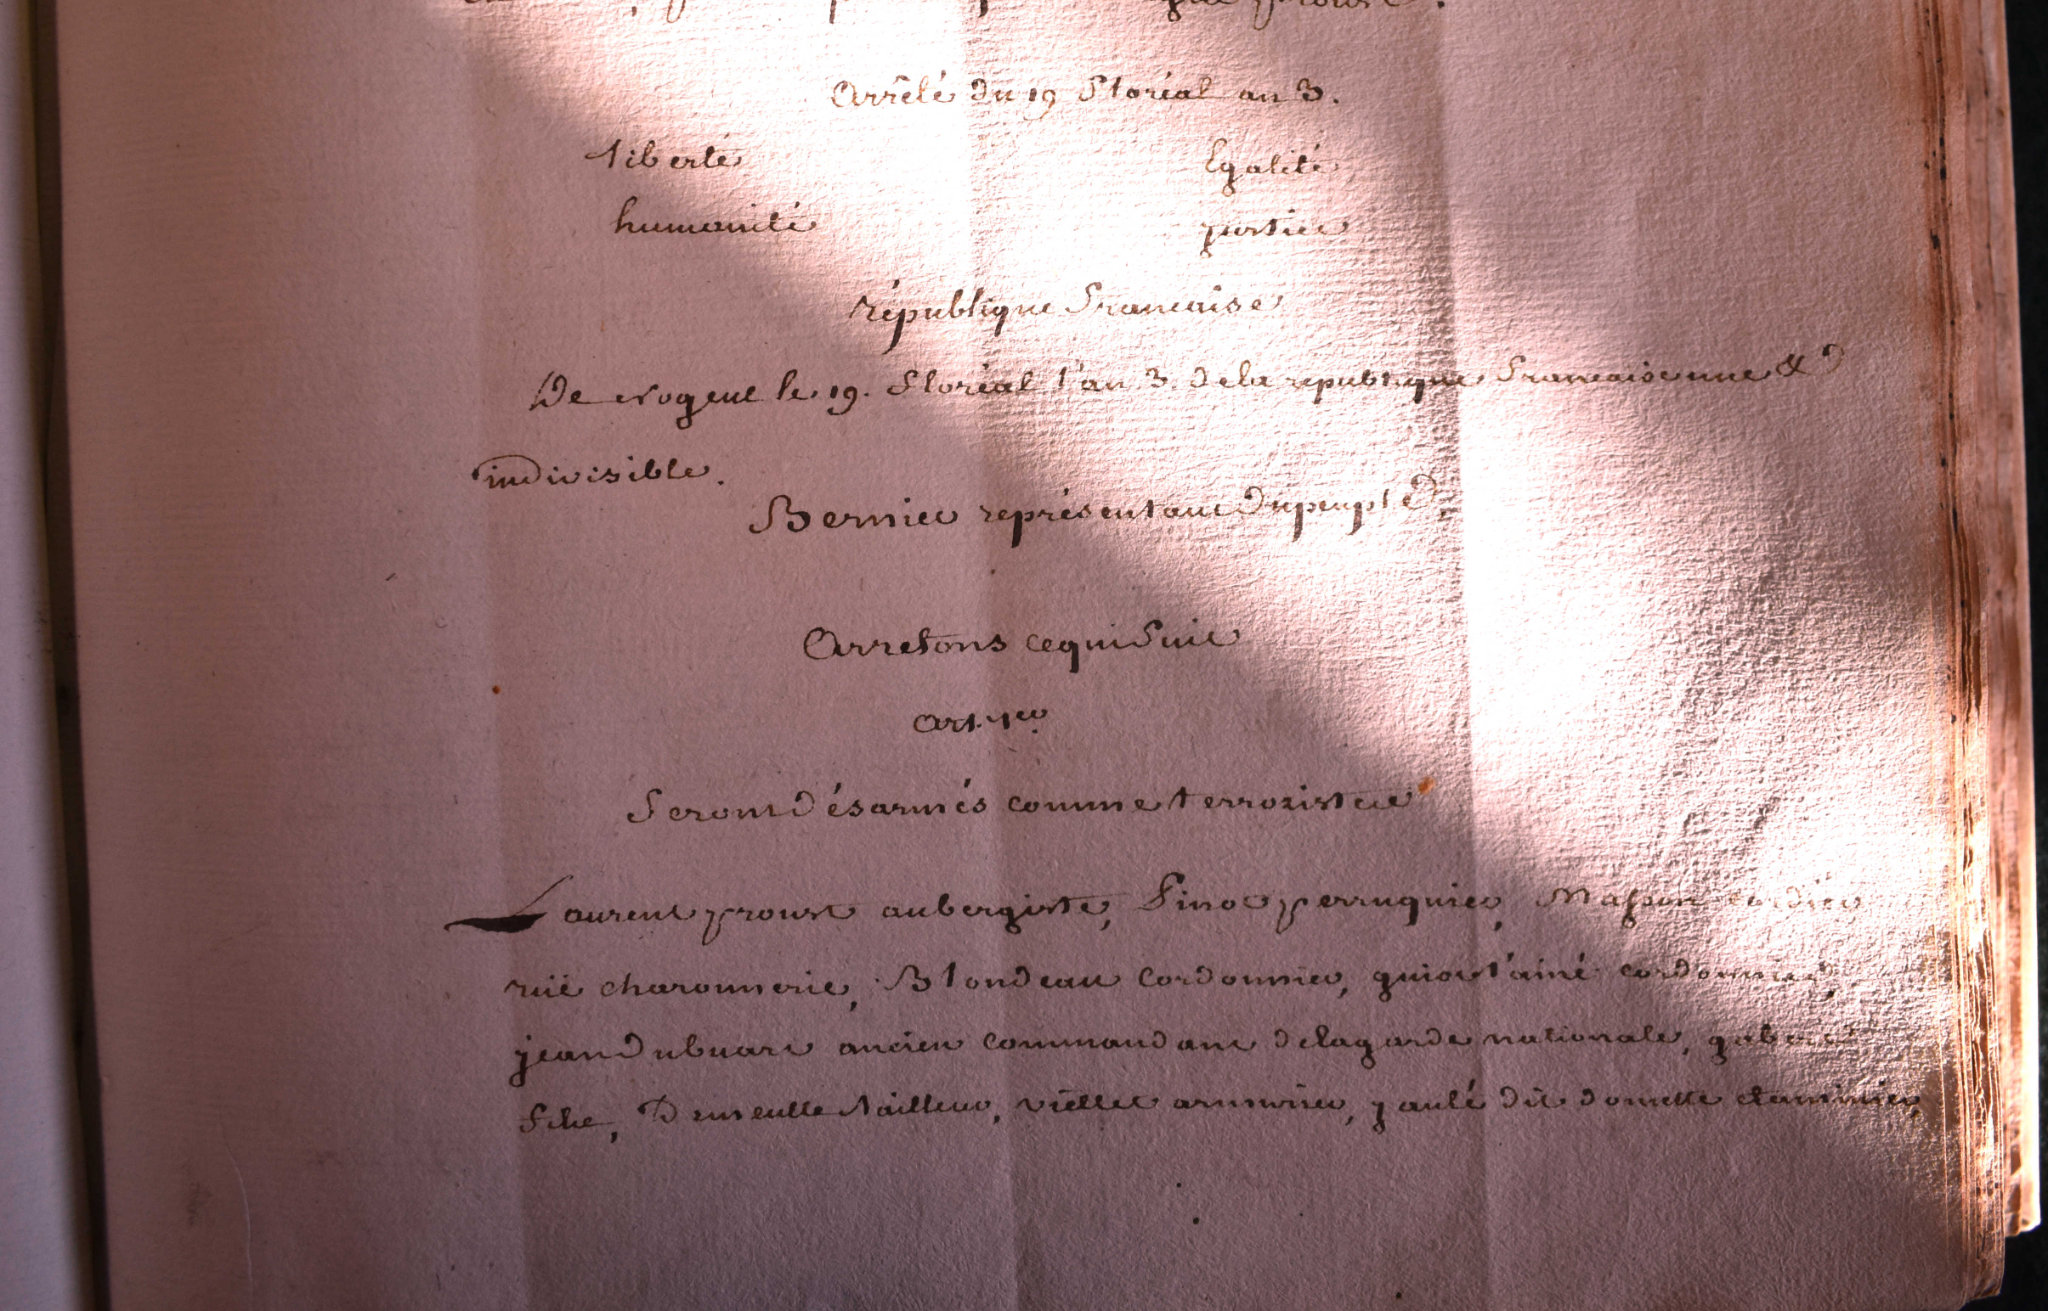 Arrêté du 19 floréal an 3.
liberté Egalité
humanité justice
république francaise
De Nogent le 19. floréal l'an 3. de la republique francaise une &
indivisible.
Bernier représentant du peuple
Arretons ce qui suit
art. 1er.
Seront désarmés comme terroristes
Laurent proust aubergiste, Finot perruquier, Masson cordier
rüe charonnerie, Blondeau cordonnier, guiot l'ainé cordonnier,
jean dubuart ancien commandant de la garde nationale,
tailleur, viellet armurier, dit domette etaminier,